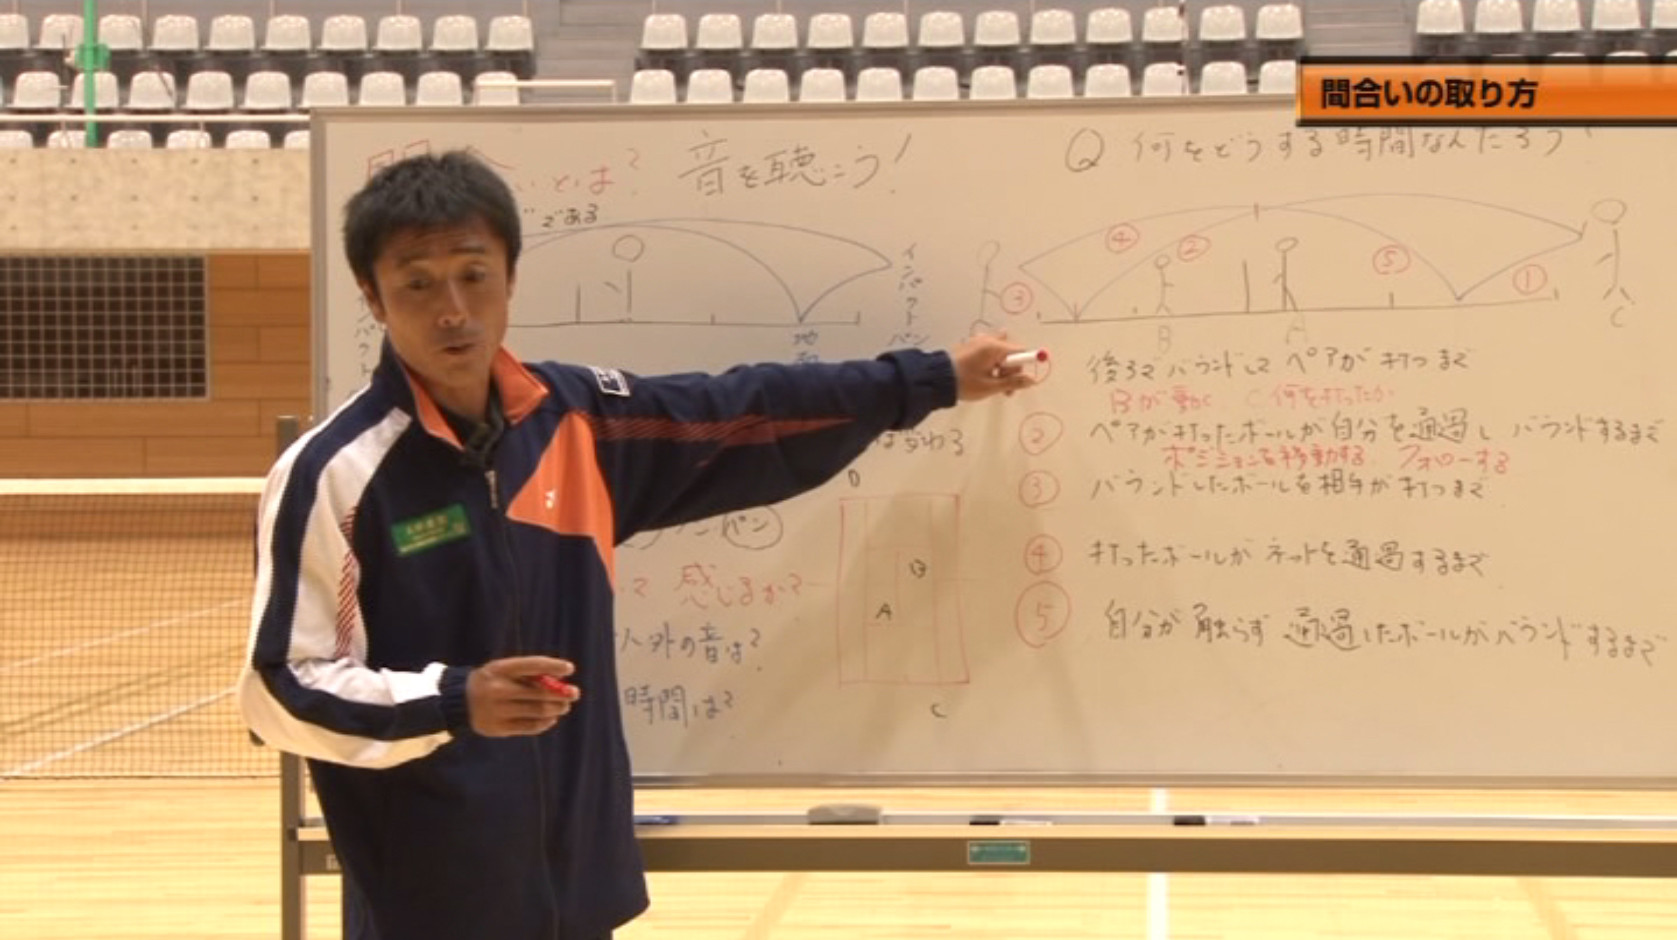 間合いの取り方
いとは?
音を聴こう!
である
インパクト
Q 何をどうする時間なんだろう
④
②
⑤
③
①
B
A
C
後ろでバウンドして ペアが打つまで
Bが動く C 何を打ったか
② ペアが打ったボールが自分を通過し バウンドするまで
ポジションを移動する フォローする
③ バウンドしたボールを相手が打つまで
④ 打ったボールがネットを通過するまで
⑤ 自分が触らず通過したボールがバウンドするまで
は変わる
パン
て 感じるか?
以外の音は?
時間は?
D
B
A
C